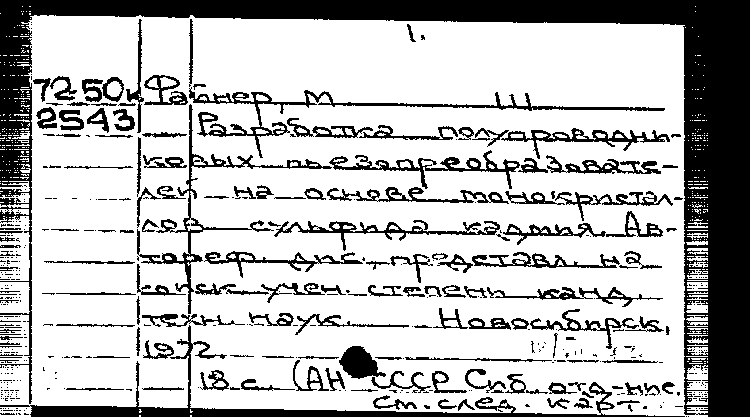 1.
72-50к Файнер, М Ш
2543 Разработка полупроводни-
ковых пьезопреобразовате-
лей на основе монокристал-
лов сульфида кадмия. Ав-
тореф. дис., представл. на
соиск учен. степени канд.
техн. наук. Новосибирск,
1972.
18 с. (АН СССР Сиб. отд-ние.
см. след. карт.